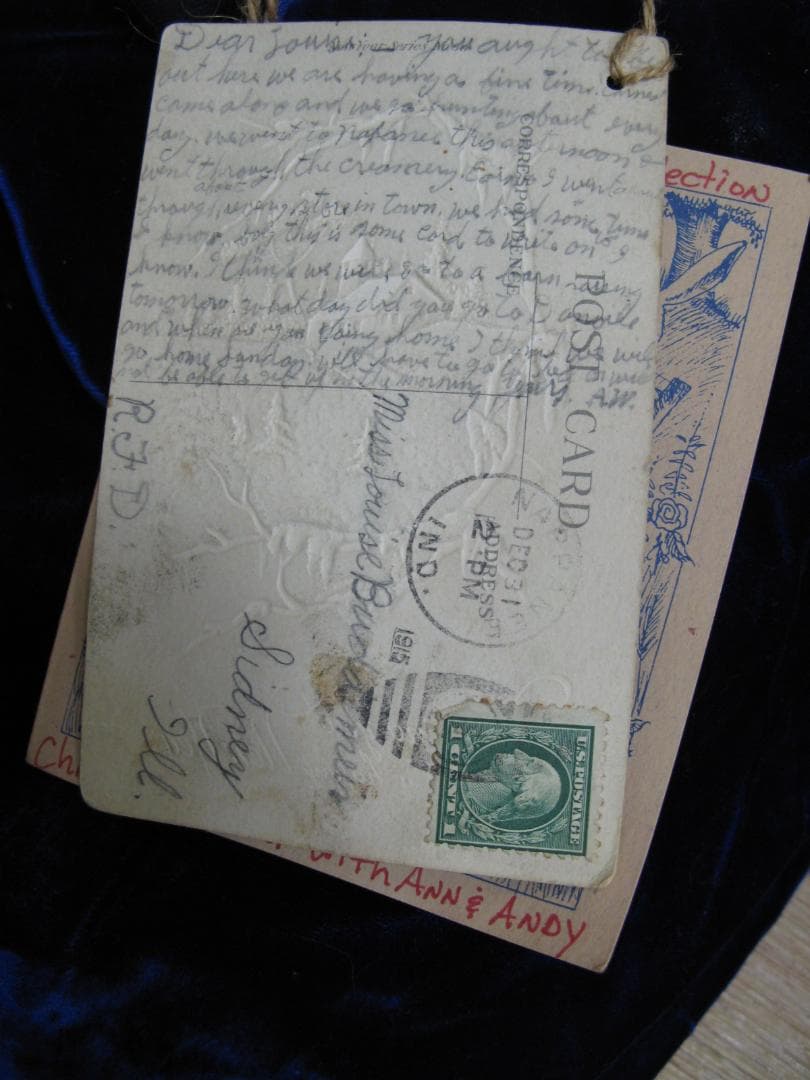 Dear Louise: — You aught to be
out here we are having a fine time.
came along and we go hunting about every
day. we went to Nappanee this afternoon &
went through the creamery. I went
through about every store in town. we had some time
I know. say this is some card to write on I
know. I think we will go to a barn raising
tomorrow. what day did you go to
and when are you going home I think we will
go home Sunday. will have to go to bed or will
not be able to get up in the morning. A.W.
CORRESPONDENCE
POST CARD
ADDRESS
NAPPANEE
DEC 31
2 PM
IND.
1915
U.S. POSTAGE
1 CENT 1
Miss Louise
Sidney
Ill.
R.F.D.
lection
Ch
with ANN & ANDY